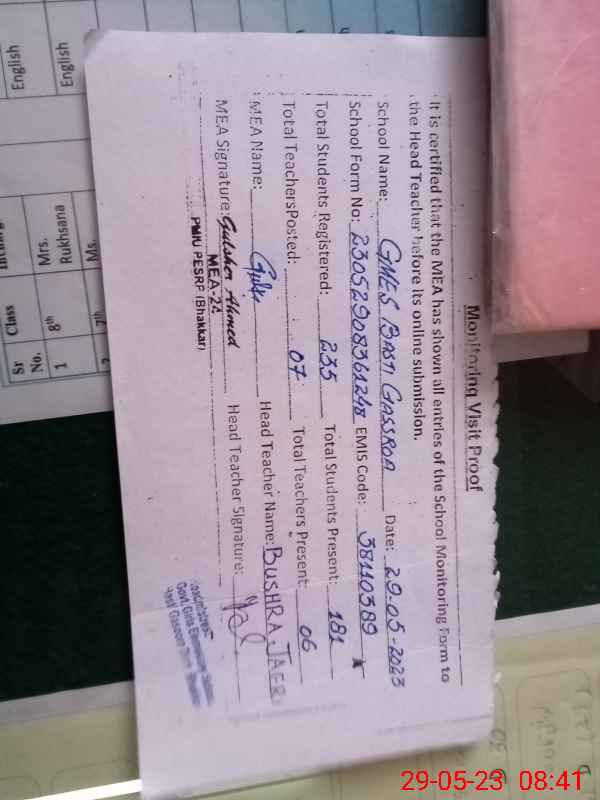 Monitoring Visit Proof
It is certified that the MEA has shown all entries of the School Monitoring Form to
the Head Teacher before its online submission.
School Name: GMES BASTI GASSROA Date: 29.05-2023
School Form No: EMIS Code: 38110389
Total Students Registered: 235 Total Students Present: 181
Total TeachersPosted: 07 Total Teachers Present: 06
MEA Name: Head Teacher Name: BUSHRA JAFRI
MEA Signature: Gulsher Ahmed Head Teacher Signature:
MEA-24
PMIU PESRP (Bhakkar)
Headmistress
Govt. Girls Elementary
Sr
No.
Class
1
8th
Mrs.
Rukhsana
English
2
7th
Ms.
English
29-05-23 08:41